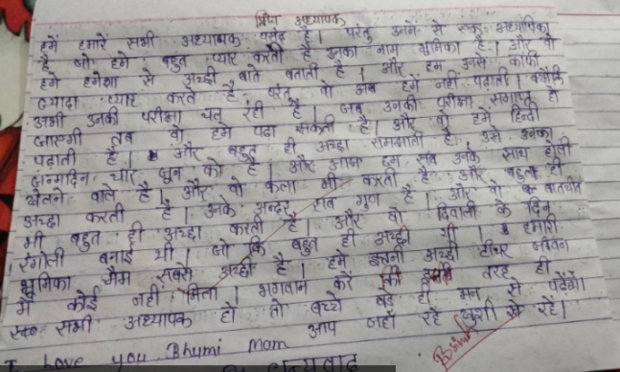 प्रिय अध्यापक
हमें हमारे सभी अध्यापक पसंद है। परंतु उनमें से एक अध्यापिका
है जो हमें बहुत प्यार करती है उनका नाम भूमिका है। और वो
हमें हमेशा से अच्छी बाते बताती है। और हम उनसे काफी
ज्यादा प्यार करते है परंतु वो अब हमें नहीं पढ़ाती। क्योंकि
अभी उनकी परीक्षा चल रही है। जब उनकी परीक्षा समाप्त हो
जाएगी तब वो हमे पढ़ा सकती है। और वो हमें हिन्दी
पढ़ाती है। और बहुत ही अच्छा समझाती है उसे उनका
जन्मदिन चार जून को है। और आज हम सब उनके साथ होली
खेलने वाले है। और वो कला भी करती है और बहुत ही
अच्छा करती है। उनके अन्दर सब गुण है। और वो बातचीत
भी बहुत ही अच्छा करती है। और वो दिवाली के दिन
रंगोली बनाई थी। जो कि बहुत ही अच्छी थी। हमारी
भूमिका मैम सबसे अच्छी है। हमें इतनी अच्छी टीचर जीवन
में कोई नहीं मिला। भगवान करें कि इसी तरह ही
सभी अध्यापक हो तो बच्चे बड़े ही मन से पढ़ेंगे।
आप जहाँ रहें खुशी से रहें।
I Love you Bhumi Mam
धन्यवाद